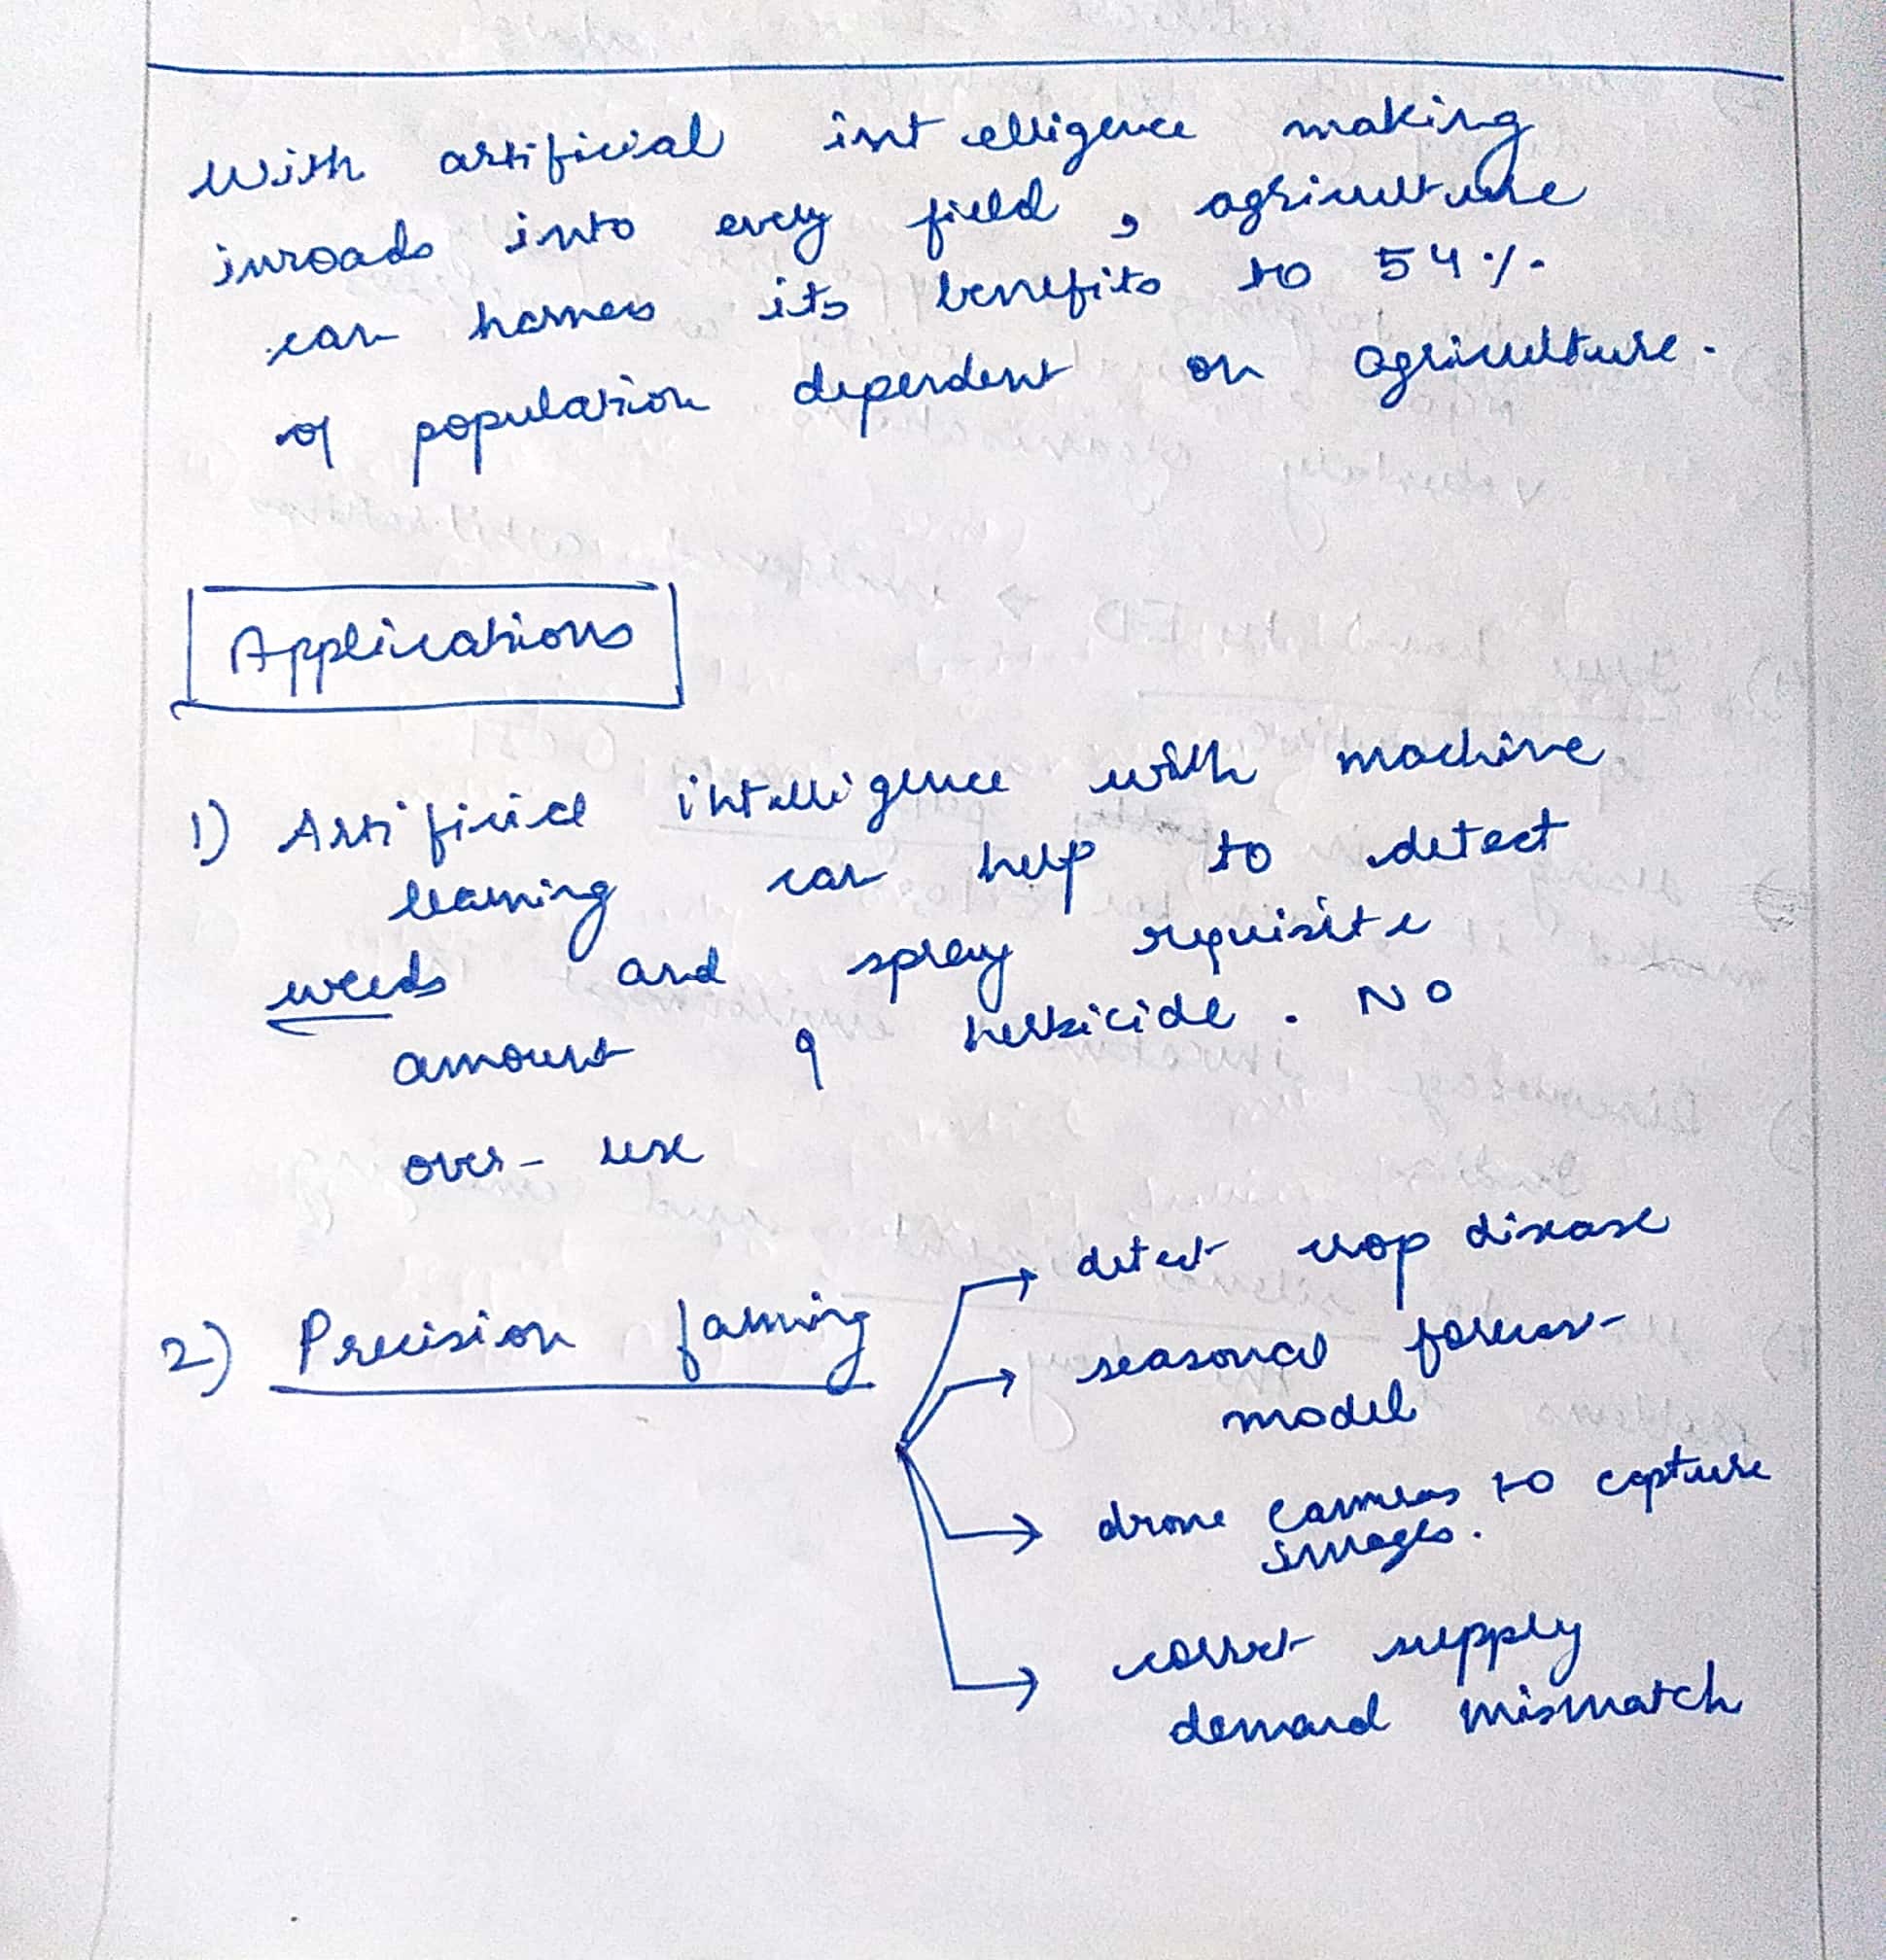 With artificial intelligence making
inroads into every field, agriculture
can harness its benefits to 54%
of population dependent on agriculture.
Applications
1) Artificial intelligence with machine
learning can help to detect
weeds and spray requisite
amount of herbicide. No
over-use
2) Precision farming
→ detect crop disease
→ seasonal forecast
model
→ drone cameras to capture
images.
→ correct supply
demand mismatch